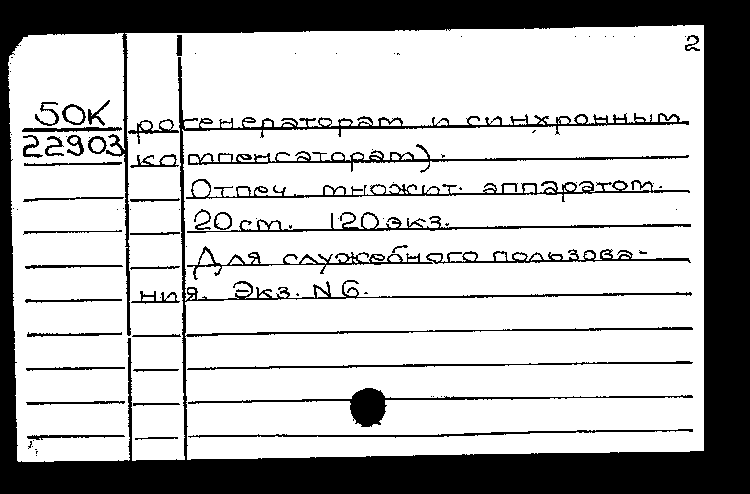 2
50К
22903
рогенераторам и синхронным
компенсаторам).
Отпеч. множит. аппаратом.
20 см. 120 экз.
Для служебного пользова-
ния. Экз. N 6.